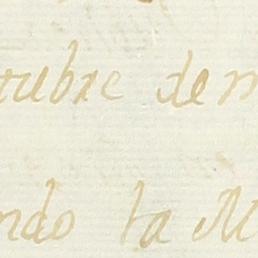 tubre de m
ndo la M